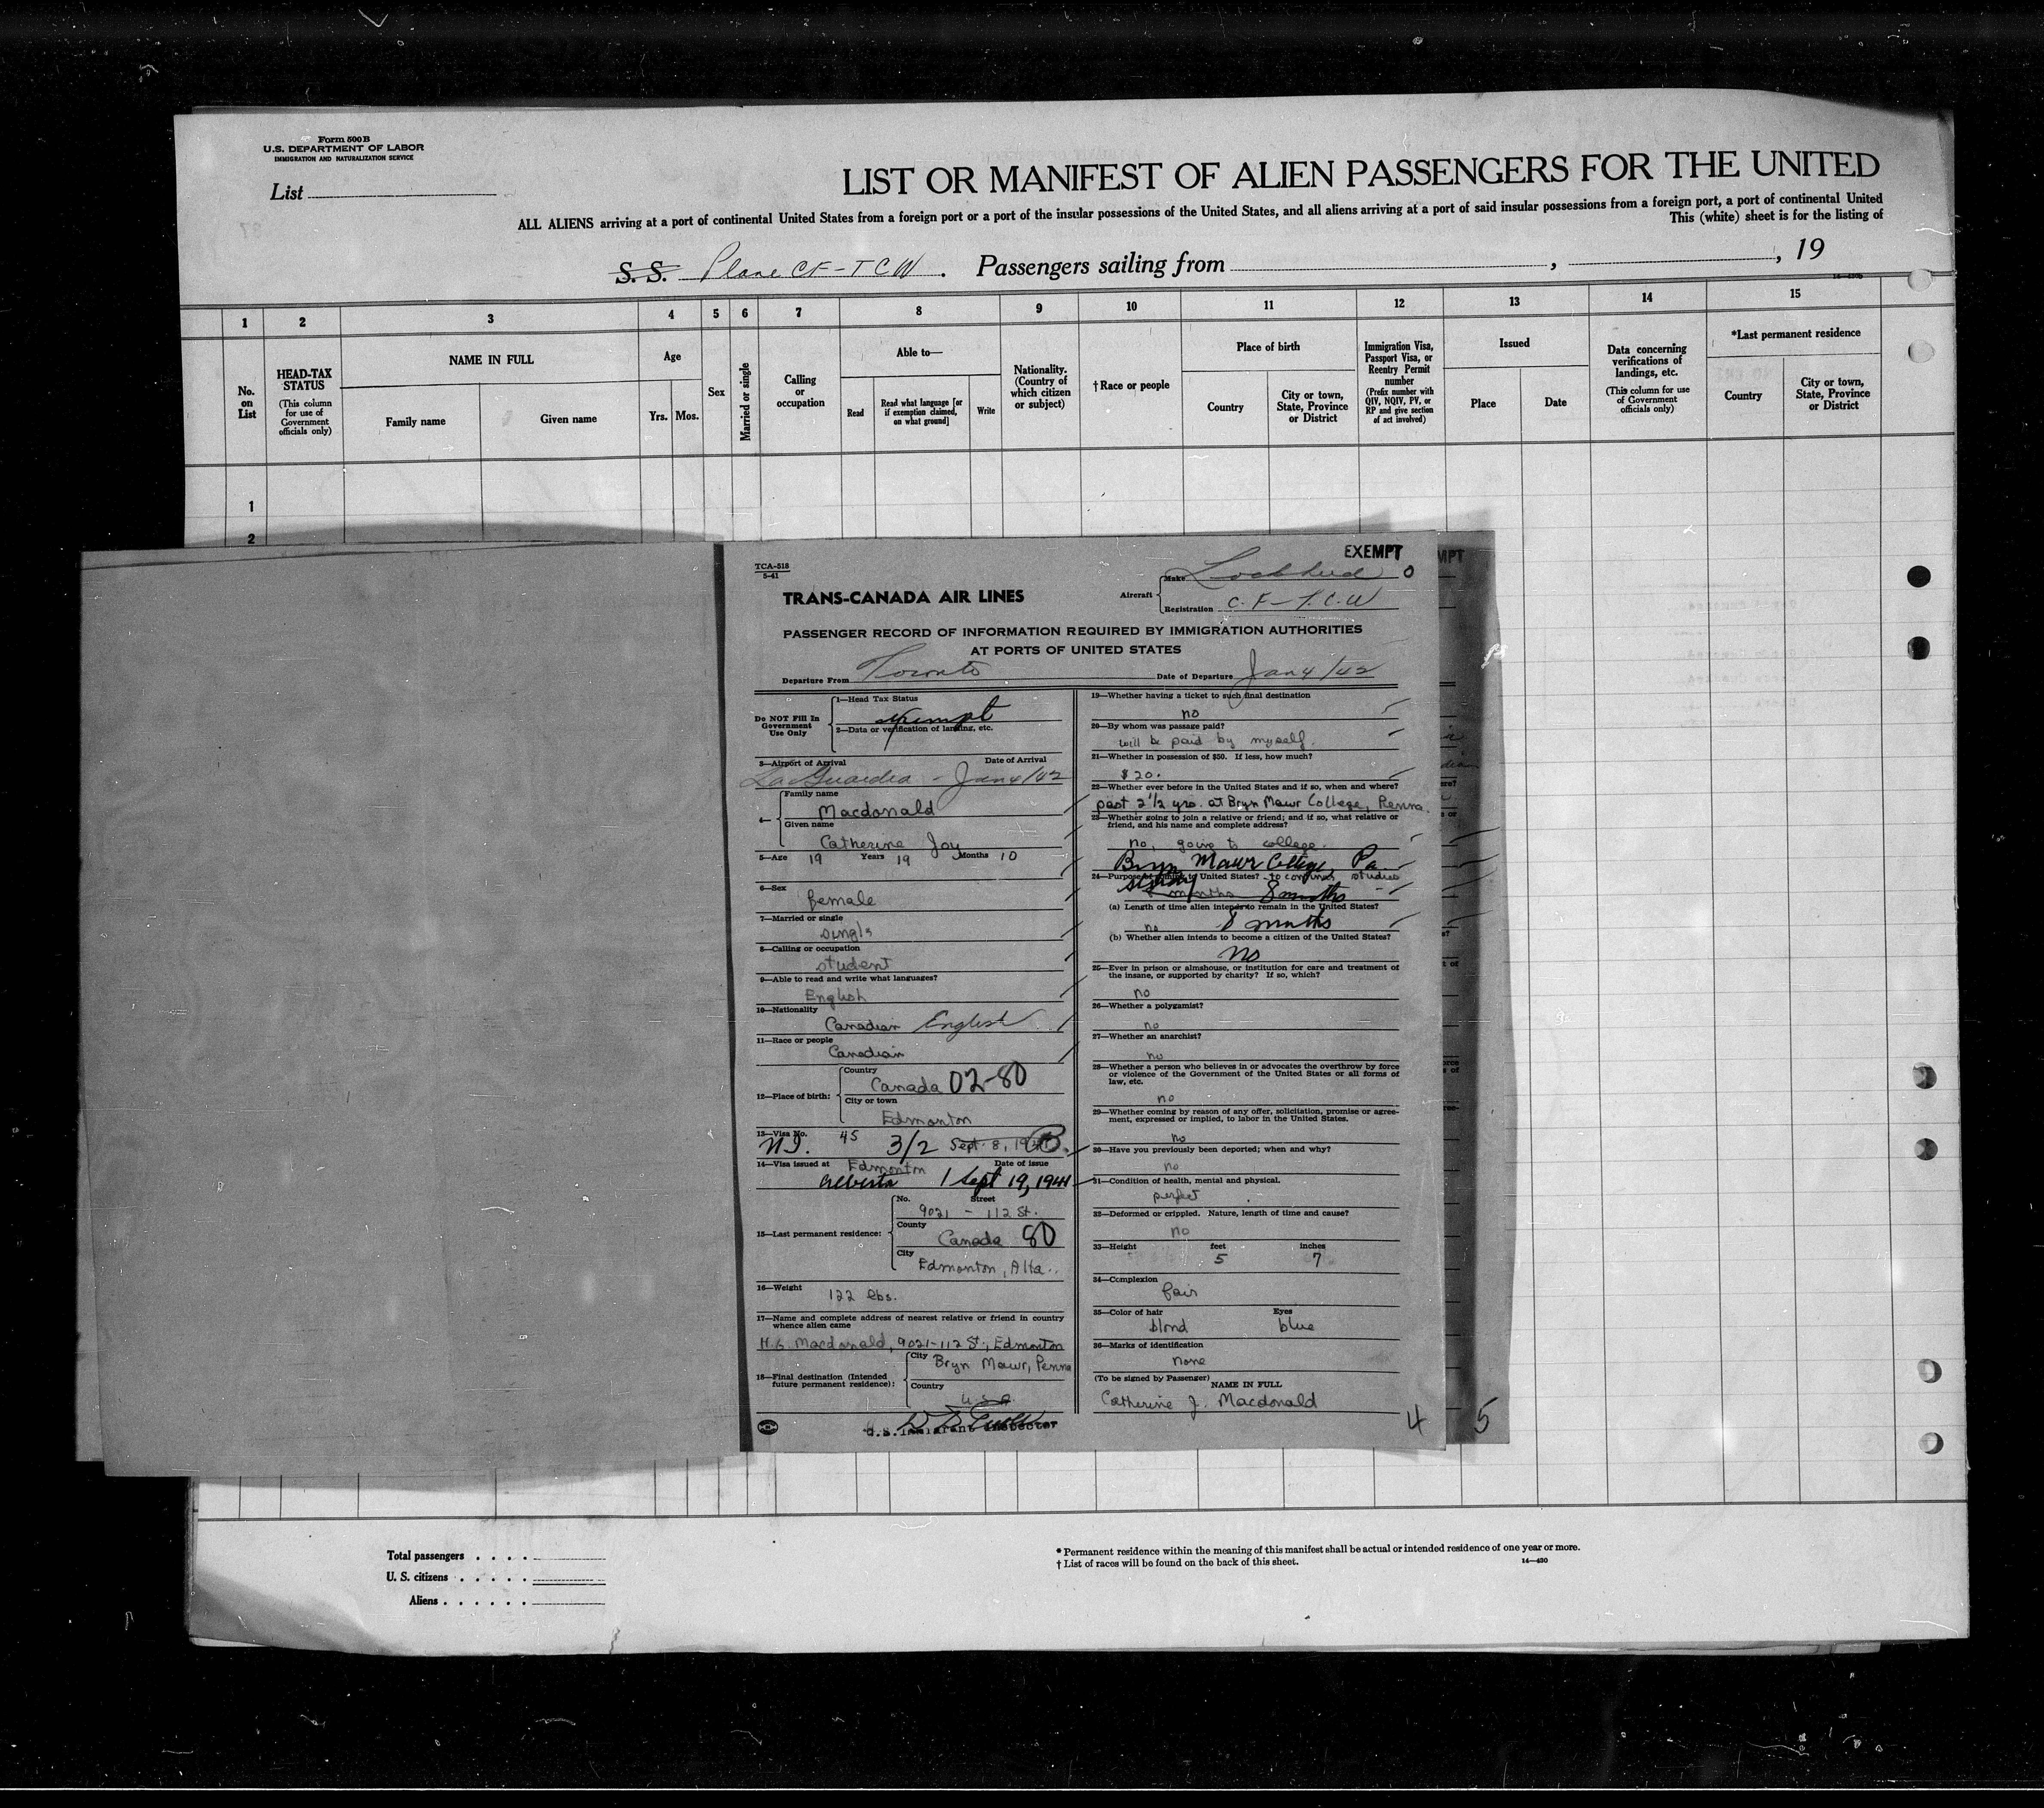 Form 500 B
U.S. DEPARTMENT OF LABOR
IMMIGRATION AND NATURALIZATION SERVICE
List
LIST OR MANIFEST OF ALIEN PASSENGERS FOR THE UNITED
ALL ALIENS arriving at a port of continental United States from a foreign port or a port of the insular possessions of the United States, and all aliens arriving at a port of said insular possessions from a foreign port, a port of continental United
This (white) sheet is for the listing of
S. S. Plane CF-TCW. Passengers sailing from , , 19
1 2 3 4 5 6 7 8 9 10 11 12 13 14 15
No. on List
HEAD-TAX STATUS (This column for use of Government officials only)
NAME IN FULL
Family name
Given name
Age
Yrs. Mos.
Sex
Married or single
Calling or occupation
Able to—
Read
Read what language [or if exemption claimed, on what ground]
Write
Nationality. (Country of which citizen or subject)
† Race or people
Place of birth
Country
City or town, State, Province or District
Immigration Visa, Passport Visa, or Reentry Permit number (Prefix number with QIV, NQIV, PV, or RP and give section of act involved)
Issued
Place
Date
Data concerning verifications of landings, etc. (This column for use of Government officials only)
*Last permanent residence
Country
City or town, State, Province or District
1
2
EXEMPT
TCA-518
5-41
TRANS-CANADA AIR LINES
Aircraft
Make Lockheed 0
Registration C.F-T.C.W
PASSENGER RECORD OF INFORMATION REQUIRED BY IMMIGRATION AUTHORITIES
AT PORTS OF UNITED STATES
Departure From Toronto Date of Departure Jan 4/42
Do NOT Fill In Government Use Only
1—Head Tax Status
exempt
2—Data or verification of landing, etc.
3—Airport of Arrival Date of Arrival
La Guardia - Jan 4/42
4— Family name
Macdonald
Given name
Catherine Joy
5—Age 19 Years 19 Months 10
6—Sex
female
7—Married or single
single
8—Calling or occupation
student
9—Able to read and write what languages?
English
10—Nationality
Canadian English
11—Race or people
Canadian
12—Place of birth:
Country
Canada 02-80
City or town
Edmonton
13—Visa No.
N.I. 45 3/2 Sept. 8, 1941
14—Visa issued at Edmonton Date of issue
Alberta 1 Sept 19, 1941
15—Last permanent residence:
No. Street
9021 - 112 St.
County
Canada 80
City
Edmonton, Alta.
16—Weight
122 lbs.
17—Name and complete address of nearest relative or friend in country
whence alien came
H.G. Macdonald, 9021-112 St., Edmonton
18—Final destination (Intended future permanent residence):
City
Bryn Mawr, Penna
Country
U.S.A.
U.S. Immigrant Inspector
19—Whether having a ticket to such final destination
no
20—By whom was passage paid?
will be paid by myself.
21—Whether in possession of $50. If less, how much?
$20.
22—Whether ever before in the United States and if so, when and where?
past 2 1/2 yrs. at Bryn Mawr College, Penna.
23—Whether going to join a relative or friend; and if so, what relative or
friend, and his name and complete address?
no, going to college.
Bryn Mawr College, Pa
24—Purpose of coming to United States? to continue studies
study months 8 months
(a) Length of time alien intends to remain in the United States?
no 8 months
(b) Whether alien intends to become a citizen of the United States?
no
25—Ever in prison or almshouse, or institution for care and treatment of
the insane, or supported by charity? If so, which?
no
26—Whether a polygamist?
no
27—Whether an anarchist?
no
28—Whether a person who believes in or advocates the overthrow by force
or violence of the Government of the United States or all forms of
law, etc.
no
29—Whether coming by reason of any offer, solicitation, promise or agree-
ment, expressed or implied, to labor in the United States.
no
30—Have you previously been deported; when and why?
no
31—Condition of health, mental and physical.
perfect
32—Deformed or crippled. Nature, length of time and cause?
no
33—Height feet inches
5 7
34—Complexion
fair
35—Color of hair Eyes
blond blue
36—Marks of identification
none
(To be signed by Passenger)
NAME IN FULL
Catherine J. Macdonald
4 5
Total passengers . . . .
U. S. citizens . . . . .
Aliens . . . . . .
* Permanent residence within the meaning of this manifest shall be actual or intended residence of one year or more.
† List of races will be found on the back of this sheet.
14—430